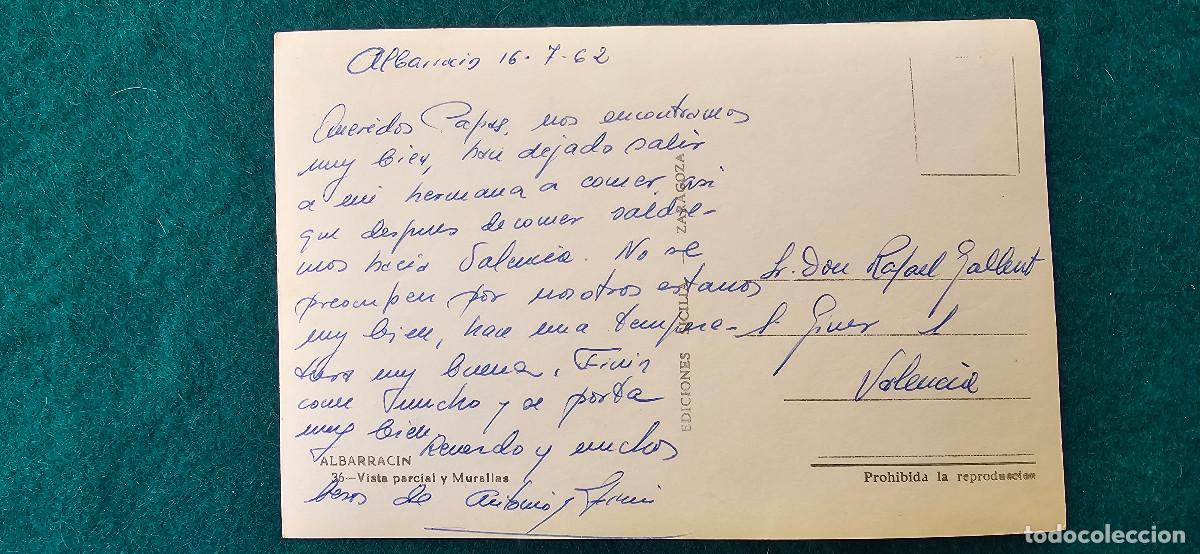 Albarracin 16-7-62
Queridos Papas, nos encontramos
muy bien, han dejado salir
a mi hermana a comer asi
que despues de comer saldre-
mos hacia Valencia. No se
preocupen por nosotros estamos
muy bien, hace una tempera-
tura muy buena, Finin
come mucho y se porta
muy bien
Recuerdo y muchos
besos de Antonio y Finin
ALBARRACIN
36—Vista parcial y Murallas
EDICIONES SICILIA — ZARAGOZA
Sr. Don Rafael Gallent
Giner 1
Valencia
Prohibida la reproduccion
todocoleccion